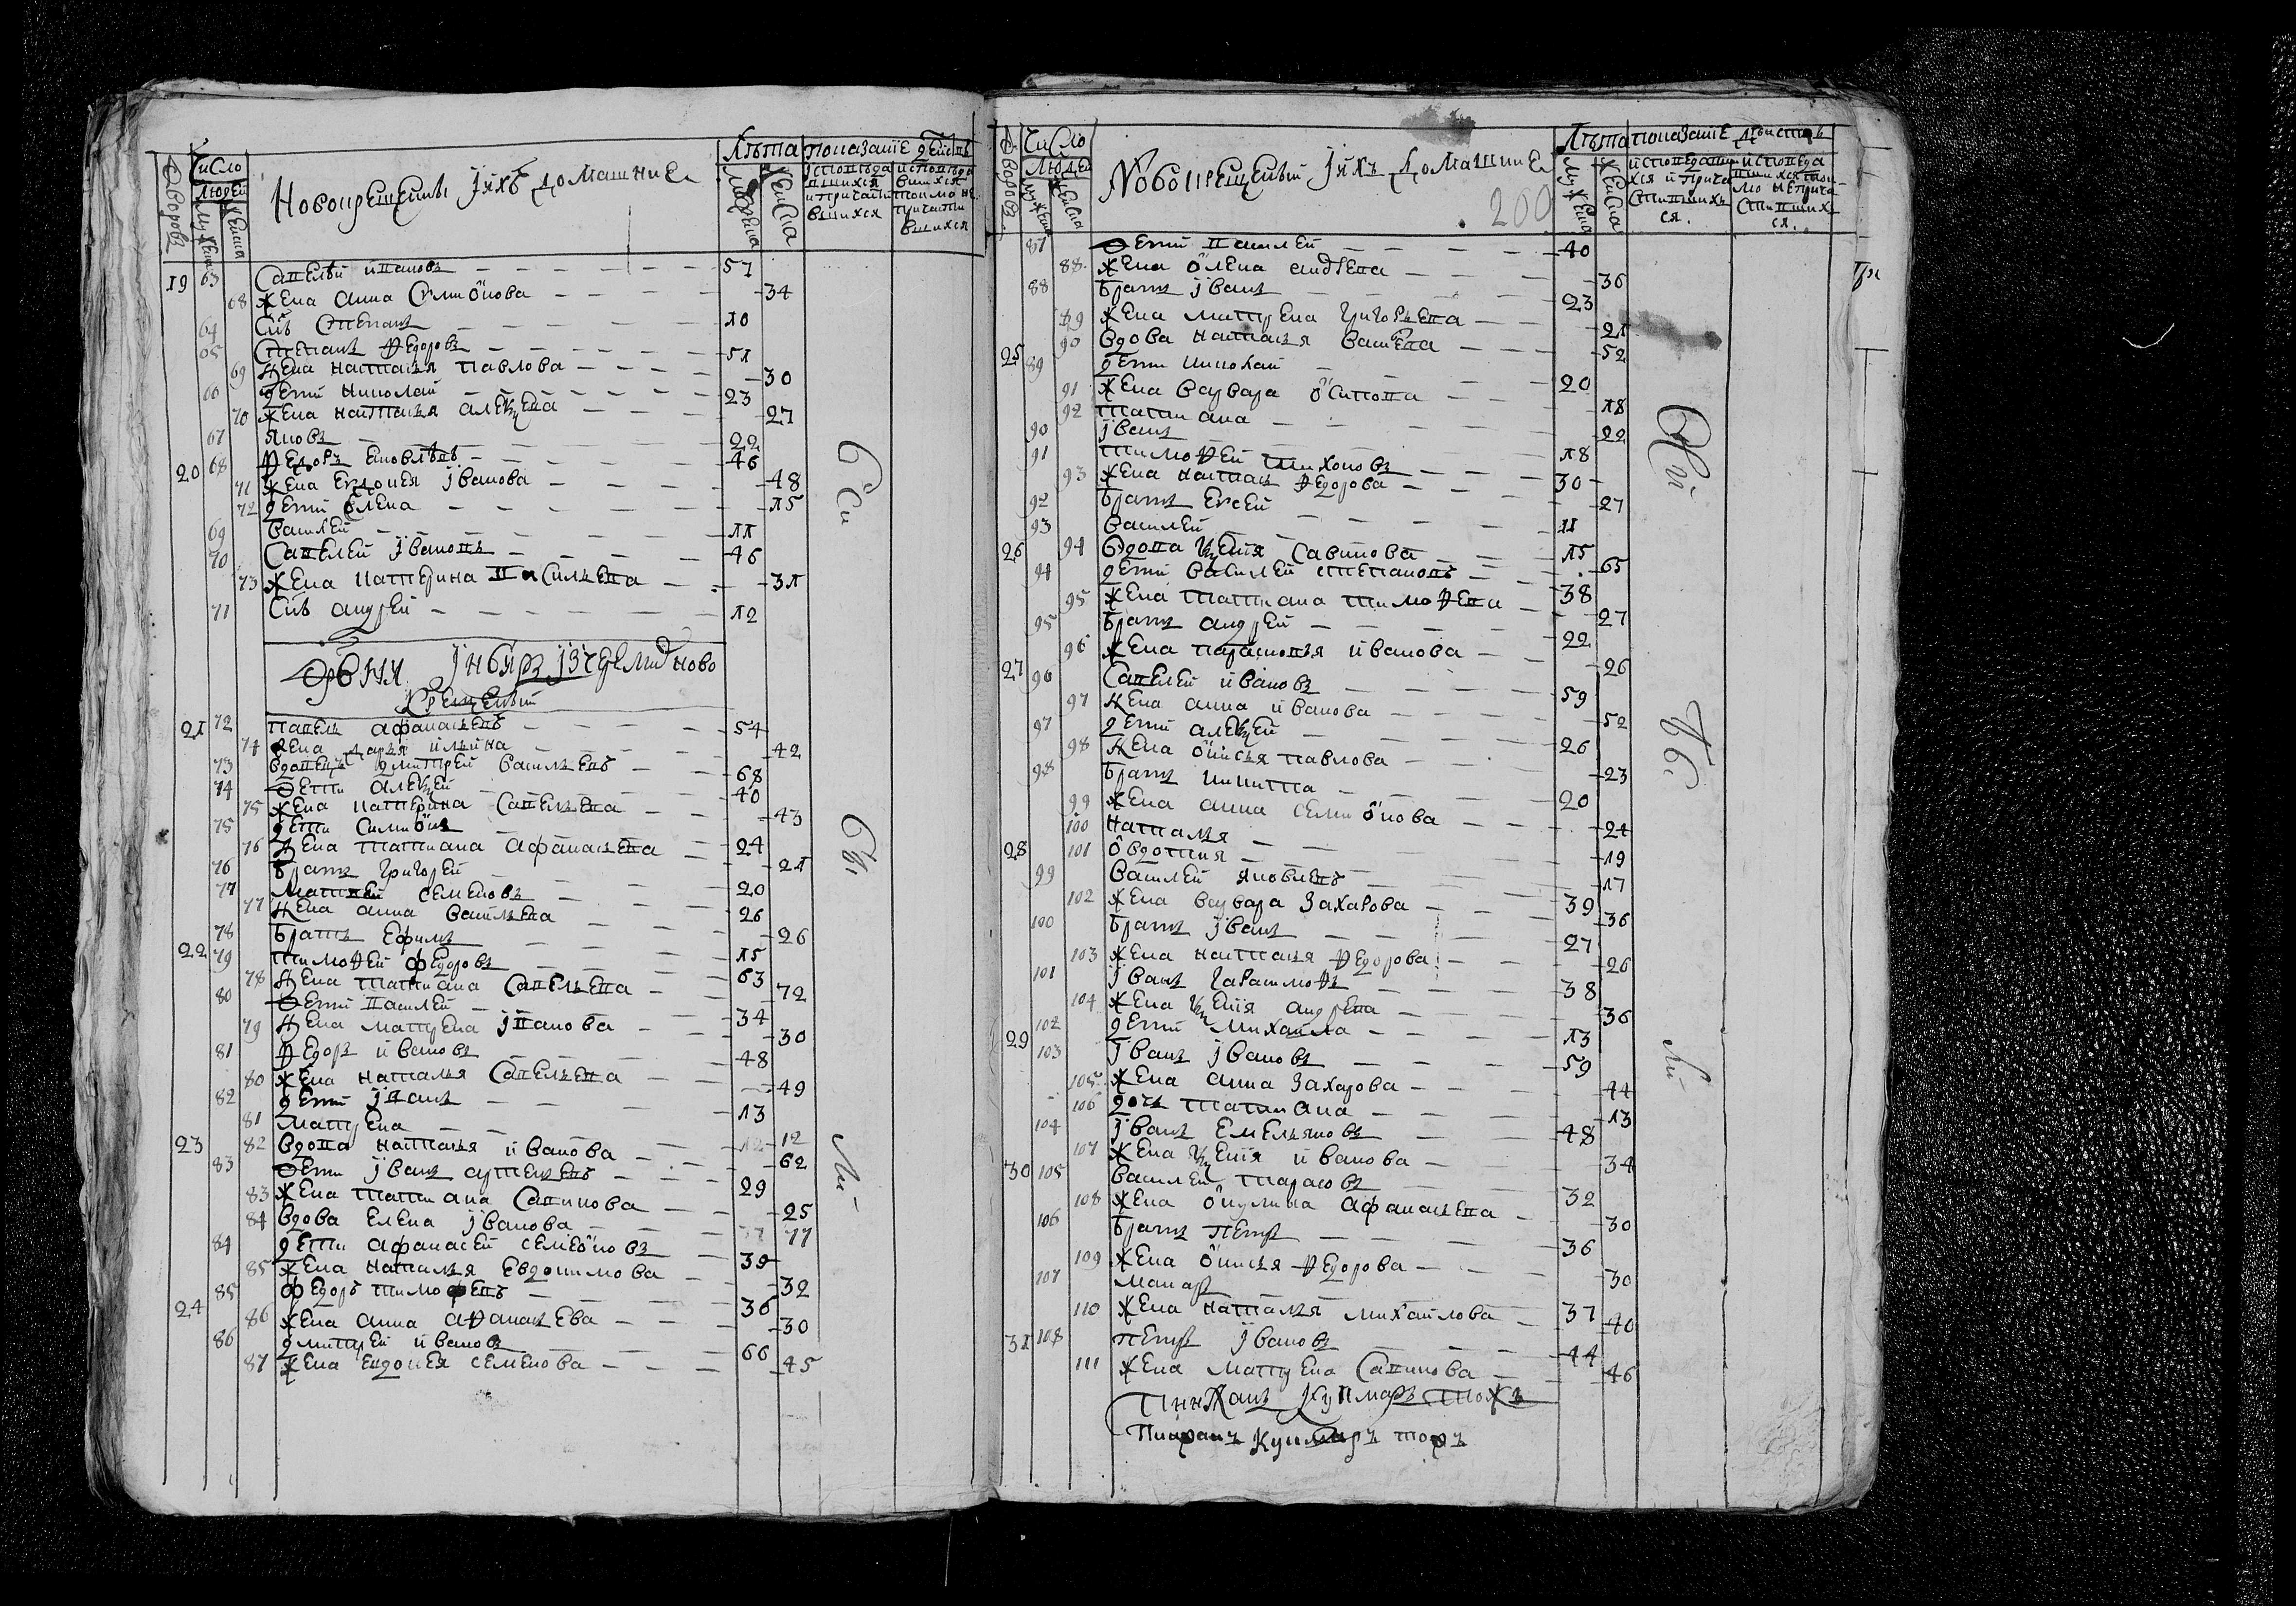 Число
Людей
Дворовъ
Мужеска
Женска
Новокрещены ихъ домашние
Лѣта
Мужеска
Женска
показание действъ
исповѣдавшихся и причастившихся
исповѣдавшихся токмо не причастившихся
19 63 Савелей Ивановъ 57
68 жена Анна Симионова 34
64 Сынъ Степанъ 10
65 Степанъ Ѳедоровъ 51
69 жена Наталья Павлова 30
66 дети Николай 23
70 жена Наталья Алексеева 27
67 Яковъ 22
20 68 Ѳедоръ Яковлевъ 46
71 жена Евдокея Iванова 48
72 дети Елена 15
69 Василей 11
70 Савелей Iвановъ 46
73 жена Катерина Васильева 31
71 Сынъ Андрей 12
Дрвня
крещеный
21 72 Павелъ Афанасьевъ 54
74 жена Дарья Ильина 42
73 вдовецъ Дмитрей Васильевъ 68
74 Дети Алексей 40
75 жена Катерина Савельева 43
75 дети Симионъ 24
76 жена Татиана Афанасьева 21
76 братъ Григорей 20
77 Матвей Семеновъ 26
77 жена Анна Васильева 26
78 братъ Ефимъ 15
22 79 Тимоѳей Федоровъ 63
78 жена Татиана Савельева 72
80 Дети Василей 34
79 жена Матрена Iванова 30
81 Ѳедоръ Ивановъ 48
80 жена Наталья Савельева 49
82 дети Iванъ 13
81 Матрена 12
23 82 вдова Наталья Иванова 62
83 Дети Iванъ Артемьевъ 29
83 жена Татиана Савинова 25
84 вдова Елена Iванова 77
84 дети Афанасей Семеоновъ 39
85 жена Наталья Евдокимова 32
85 Федоръ Тимофеевъ 36
24 86 жена Анна Аѳанасьева 30
86 Дмитрей Ивановъ 66
87 жена Евдокея Семенова 45
Число
Людей
Дворовъ
Мужеска
Женска
Новокрещеный ихъ домашние
200
Лѣта
Мужеска
Женска
показание действъ
исповедавшихся и причастившихся.
исповедавшихся токмо не причастившихся.
87 Дети Василей 40
88 жена Олена Андреева 36
88 братъ Iванъ 23
89 жена Матрена Григорьева 21
90 вдова Наталья 52
25 89 дети Николай 20
91 жена Варвара Осипова 18
92 Татиана 22
90 Iванъ 18
91 Тимоѳей Тихоновъ 30
93 жена Наталья Ѳедорова 27
92 братъ Евсей 11
93 Василей 15
26 94 Вдова Ксения Савинова 65
94 дети Василей Степановъ 38
95 жена Татиана Тимоѳеева 27
95 братъ Андрей 22
96 жена Парасковья Иванова 26
27 96 Савелей Ивановъ 59
97 жена Анна Иванова 52
97 дети Алексей 26
98 жена Павлова 23
98 братъ Никита 20
99 жена Анна Семионова 24
100 Наталья 19
28 101 Овдотия 17
99 Василей Яковлевъ 39
102 жена Варвара Захарова 36
100 братъ Iванъ 27
103 жена Наталья Ѳедорова 26
101 Iванъ Гарасимовъ 38
104 жена Ксения Андреева 36
102 дети Михайла 13
29 103 Iванъ Iвановъ 59
105 жена Анна Захарова 44
106 дочь Татиана 13
104 Iванъ Емельяновъ 48
107 жена Ксения Иванова 34
30 105 Василей Тарасовъ 32
108 жена Окулина Афанасьева 30
106 братъ Петръ 36
109 жена Ѳедорова 30
107 Макаръ 37
110 жена Наталья Михайлова 40
31 108 Петръ Iвановъ 44
111 жена Матрена Савинова 46